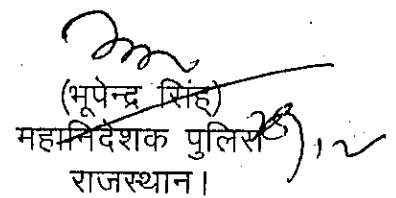 (भूपेन्द्र सिंह)
महानिदेशक पुलिस
राजस्थान।